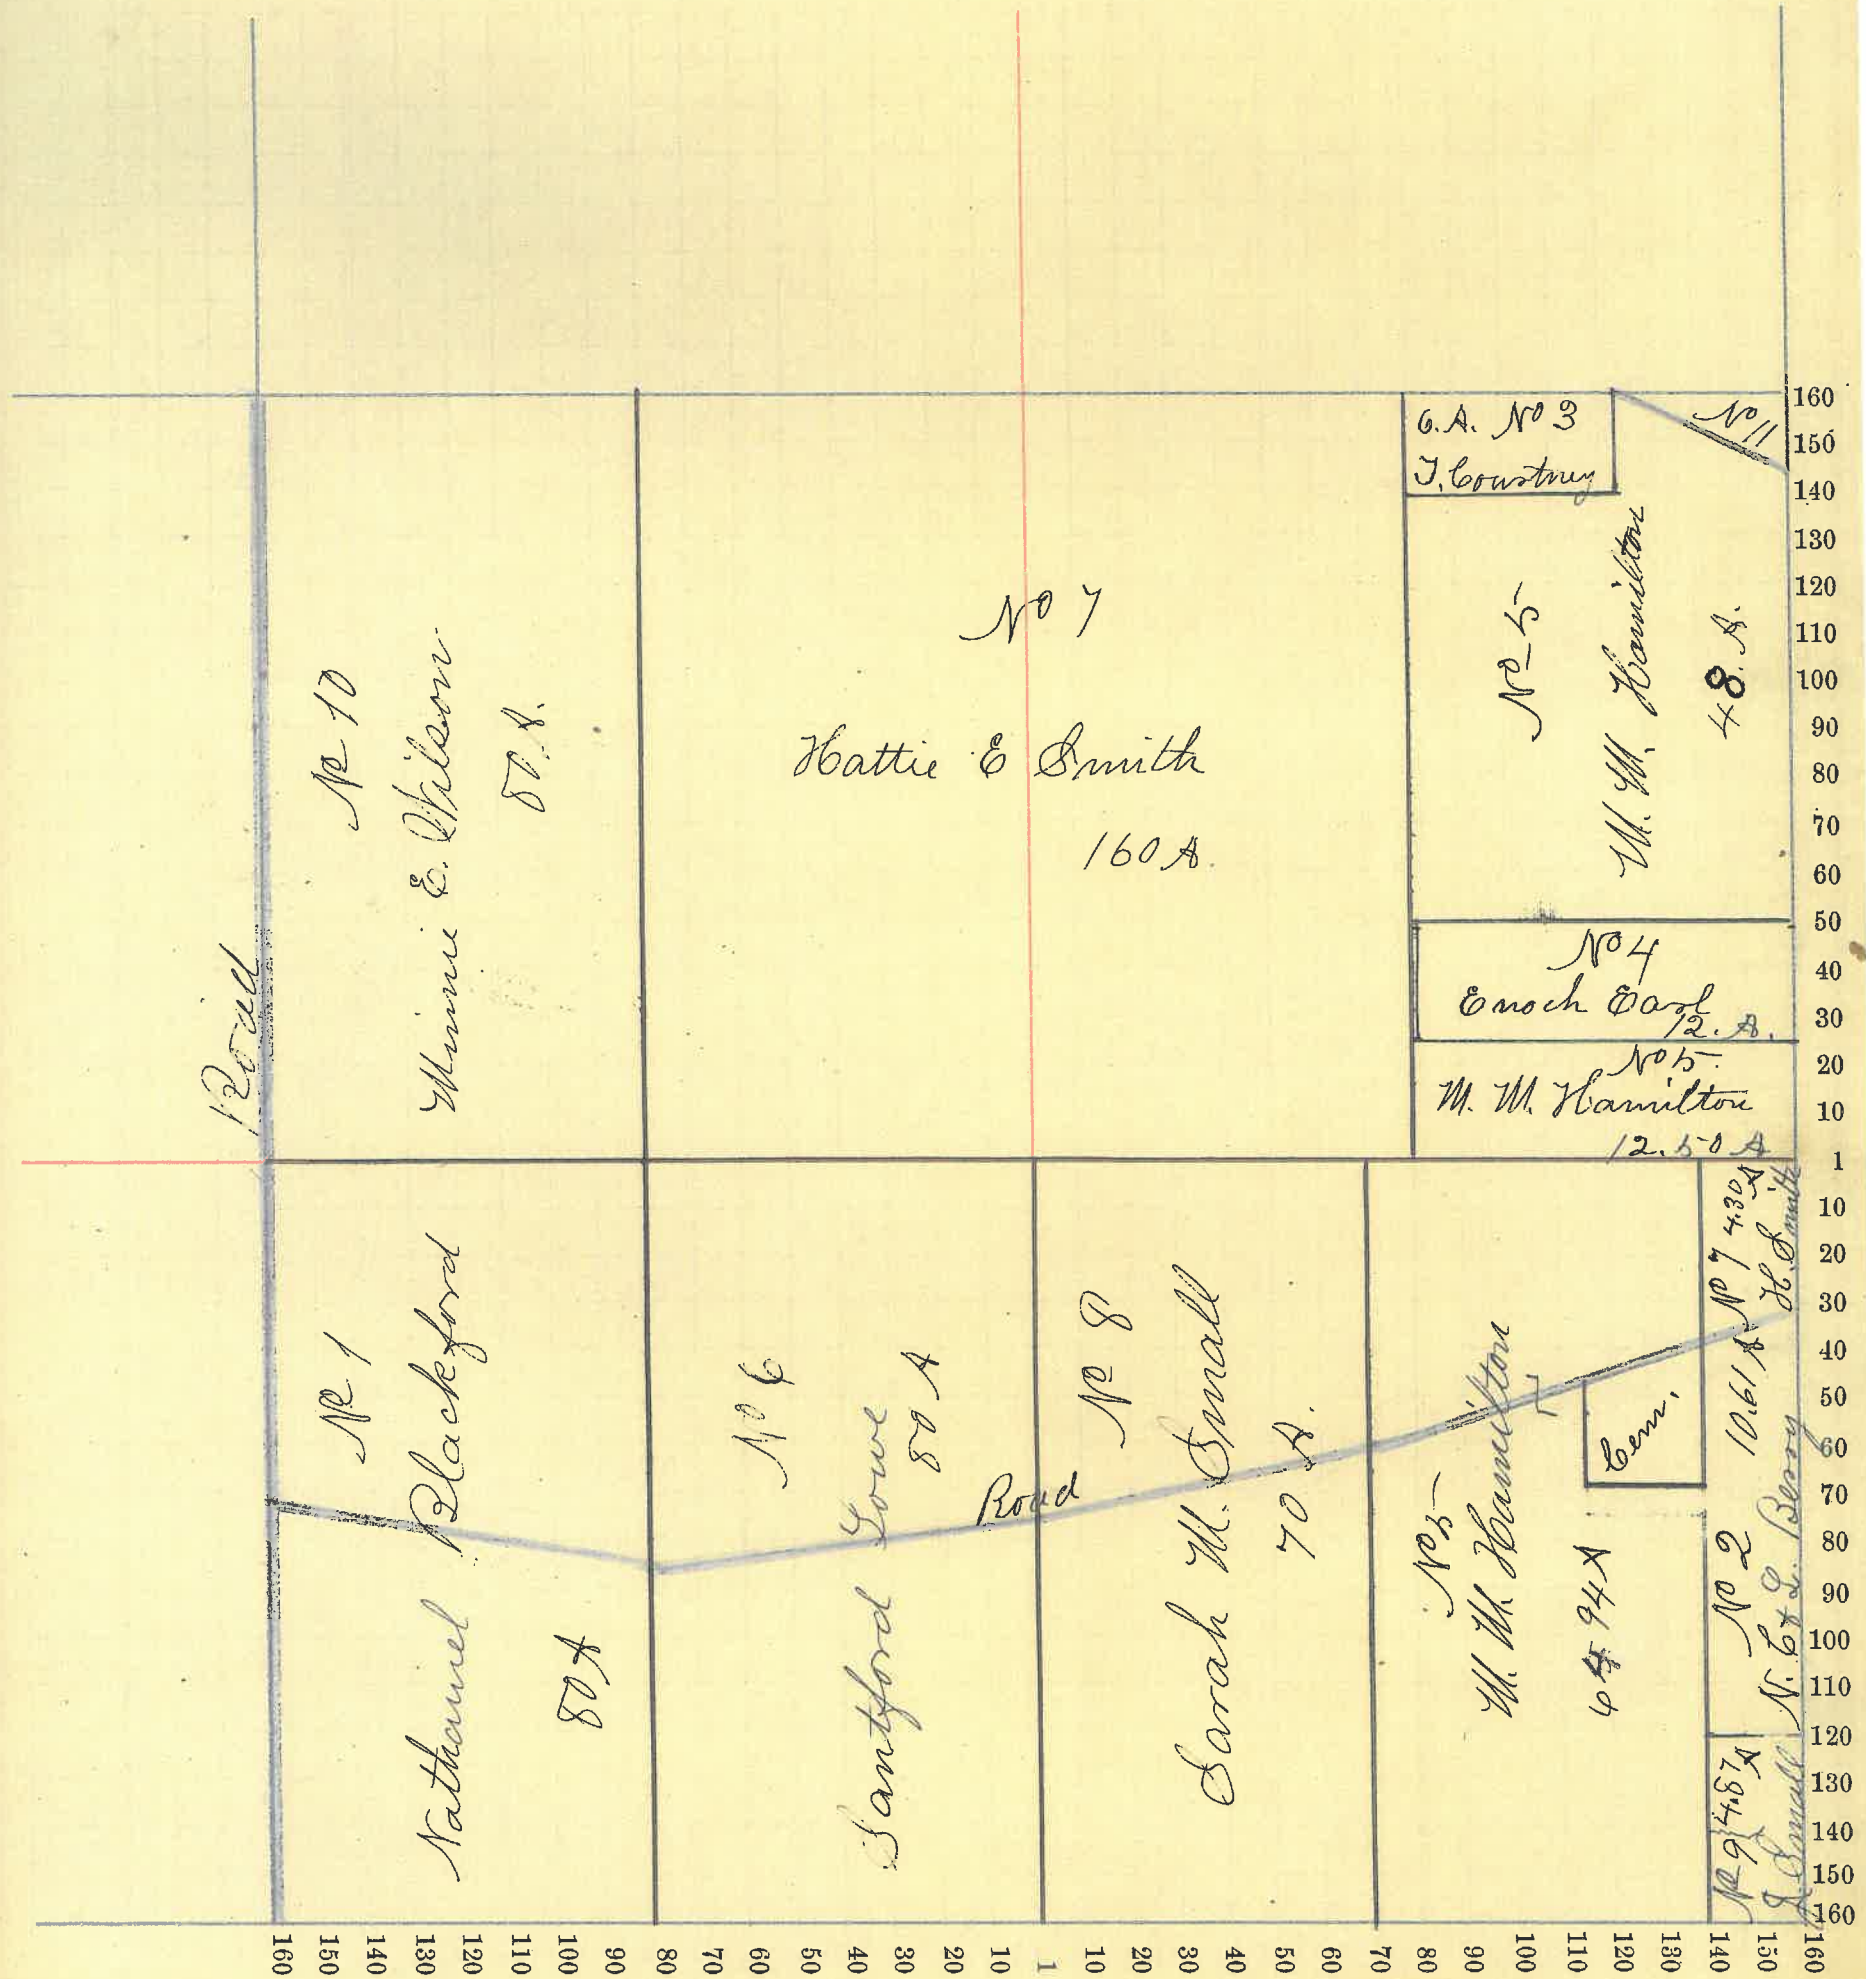 Road
No 10
Minnie E. Wilson
80. A.
No 7
Hattie E Smith
160 A.
6. A. No 3
T. Courtney
No 11
No 5
M. M. Hamilton
48. A.
No 4
Enoch Earl
12. A.
No 5.
M. M. Hamilton
12.50 A
No 1
Nathaniel Blackford
80 A
No 6
Santford Lowe
80 A
Road
No 8
Sarah M. Small
70 A.
No 5
M. M. Hamilton
64.94 A
Cem.
No 7 4.30 A
H. Smith
No 2 10.61 A
N. C & L. Berry
No 9 4.67 A
Small
160
150
140
130
120
110
100
90
80
70
60
50
40
30
20
10
1
10
20
30
40
50
60
70
80
90
100
110
120
130
140
150
160
160 150 140 130 120 110 100 90 80 70 60 50 40 30 20 10 1 10 20 30 40 50 60 70 80 90 100 110 120 130 140 150 160